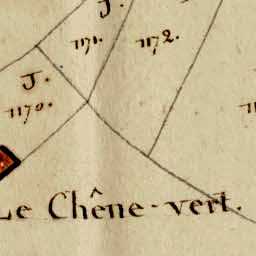 J.
1171.
1172.
J.
1170.
Le Chêne-vert.